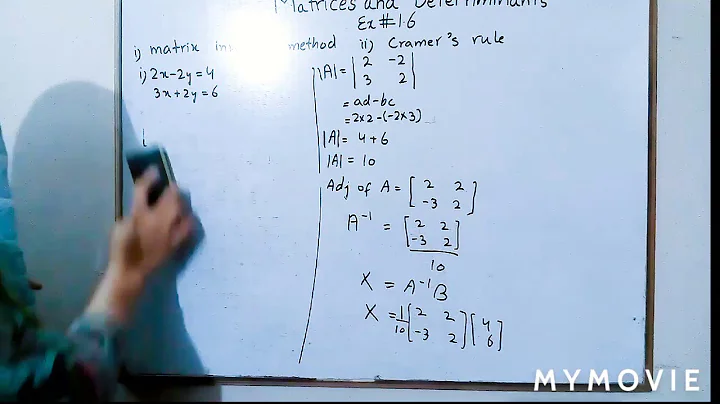 Matrices and Determinants
Ex#1.6
i) matrix method ii) Cramer's rule
i) 2x-2y=4
3x+2y=6
|A|= |2 -2|
|3 2|
= ad-bc
=2x2-(-2x3)
|A|= 4+6
|A|= 10
Adj of A= [2 2]
[-3 2]
A⁻¹ = [2 2]
[-3 2]
10
X = A⁻¹B
X = 1/10 [2 2] [4]
[-3 2] [6]
MYMOVIE